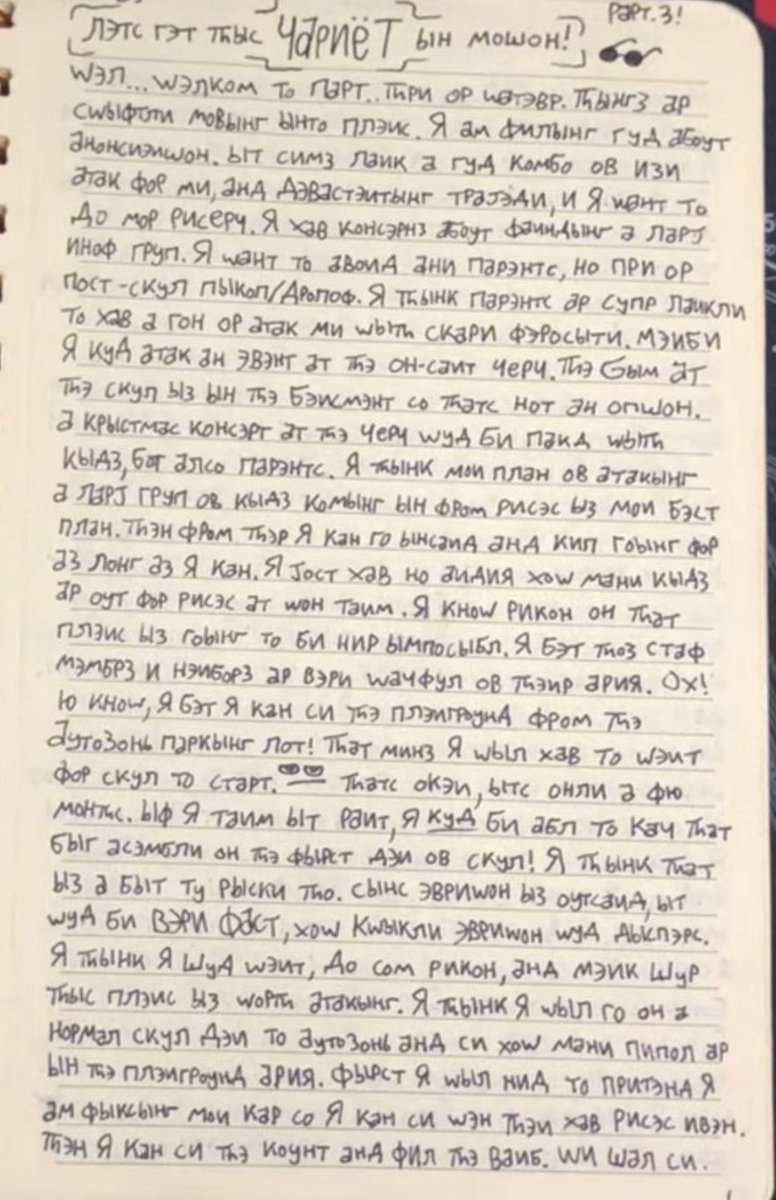 ЛЭТС ГЭТ ТҺЫС ЧАРИЁТ ЫН МОШОН! РАРТ.3!
WЭЛ... WЭЛКОМ ТО ПАРТ.. ТҺРИ ОР WАТЭВР. ТҺЫНГЗ АР
СWЫФТЛИ МОВЫНГ ЫНТО ПЛЭИС. Я АМ ФИЛЫНГ ГУД АБОУТ
АНОНСИЭИШОН. ЫТ СИМЗ ЛАИК А ГУД КОМБО ОВ ИЗИ
АТАК ФОР МИ, АНД ДЭВАСТЭИТЫНГ ТРАЈЭДИ, И Я WАНТ ТО
ДО МОР РИСЕРЧ. Я ХАВ КОНСЭРНЗ АБОУТ ФАИНДЫНГ А ЛАРЈ
ИНАФ ГРУП. Я WАНТ ТО АВОИД АНИ ПАРЭНТС, НО ПРИ ОР
ПОСТ-СКУЛ ПЫКОП/ДРОПОФ. Я ТҺЫНК ПАРЭНТС АР СУПР ЛАИКЛИ
ТО ХАВ А ГОН ОР АТАК МИ WЫТҺ СКАРИ ФЭРОСЫТИ. МЭИБИ
Я КУД АТАК АН ЭВЭНТ АТ ТҺЭ ОН-САИТ ЧЕРЧ. ТҺЭ GЫМ АТ
ТҺЭ СКУЛ ЫЗ ЫН ТҺЭ БЭИСМЭНТ СО ТҺАТС НОТ АН ОПШОН.
А КРЫСТМАС КОНСЭРТ АТ ТҺЭ ЧЕРЧ WУД БИ ПАКД WЫТҺ
КЫДЗ, БОТ АЛСО ПАРЭНТС. Я ТҺЫНК МОИ ПЛАН ОВ АТАКЫНГ
А ЛАРЈ ГРУП ОВ КЫДЗ КОМЫНГ ЫН ФРОМ РИСЭС ЫЗ МОИ БЭСТ
ПЛАН. ТҺЭН ФРОМ ТҺЭР Я КАН ГО ЫНСАИД АНД КИП ГОЫНГ ФОР
АЗ ЛОНГ АЗ Я КАН. Я ЈОСТ ХАВ НО АИДИЯ ХОW МАНИ КЫДЗ
АР ОУТ ФОР РИСЭС АТ WОН ТАИМ. Я КНОW РИКОН ОН ТҺАТ
ПЛЭИС ЫЗ ГОЫНГ ТО БИ НИР ЫМПОСЫБЛ. Я БЭТ ТҺОЗ СТАФ
МЭМБРЗ И НЭИБОРЗ АР ВЭРИ WАЧФУЛ ОВ ТҺЭИР АРИЯ. ОХ!
Ю КНОW, Я БЭТ Я КАН СИ ТҺЭ ПЛЭИГРОУНД ФРОМ ТҺЭ
АУТОЗОНЬ ПАРКЫНГ ЛОТ! ТҺАТ МИНЗ Я WЫЛ ХАВ ТО WЭИТ
ФОР СКУЛ ТО СТАРТ. ТҺАТС ОКЭИ, ЫТС ОНЛИ А ФЮ
МОНТҺС. ЫФ Я ТАИМ ЫТ РАИТ, Я КУД БИ АБЛ ТО КАЧ ТҺАТ
БЫГ АСЭМБЛИ ОН ТҺЭ ФЫРСТ ДЭИ ОВ СКУЛ! Я ТҺЫНК ТҺАТ
ЫЗ А БЫТ ТУ РЫСКИ ТҺО. СЫНС ЭВРИWОН ЫЗ ОУТСАИД, ЫТ
WУД БИ ВЭРИ ФАСТ, ХОW КWЫКЛИ ЭВРИWОН WУД ДЫСПЭРС.
Я ТҺЫНК Я ШУД WЭИТ, ДО СОМ РИКОН, АНД МЭИК ШУР
ТҺЫС ПЛЭИС ЫЗ WОРТҺ АТАКЫНГ. Я ТҺЫНК Я WЫЛ ГО ОН А
НОРМАЛ СКУЛ ДЭИ ТО АУТОЗОНЬ АНД СИ ХОW МАНИ ПИПОЛ АР
ЫН ТҺЭ ПЛЭИГРОУНД АРИЯ. ФЫРСТ Я WЫЛ НИД ТО ПРИТЭНД Я
АМ ФЫКСЫНГ МОИ КАР СО Я КАН СИ WЭН ТҺЭИ ХАВ РИСЭС ИВЭН.
ТҺЭН Я КАН СИ ТҺЭ КОУНТ АНД ФИЛ ТҺЭ ВАИБ. WИ ШАЛ СИ.